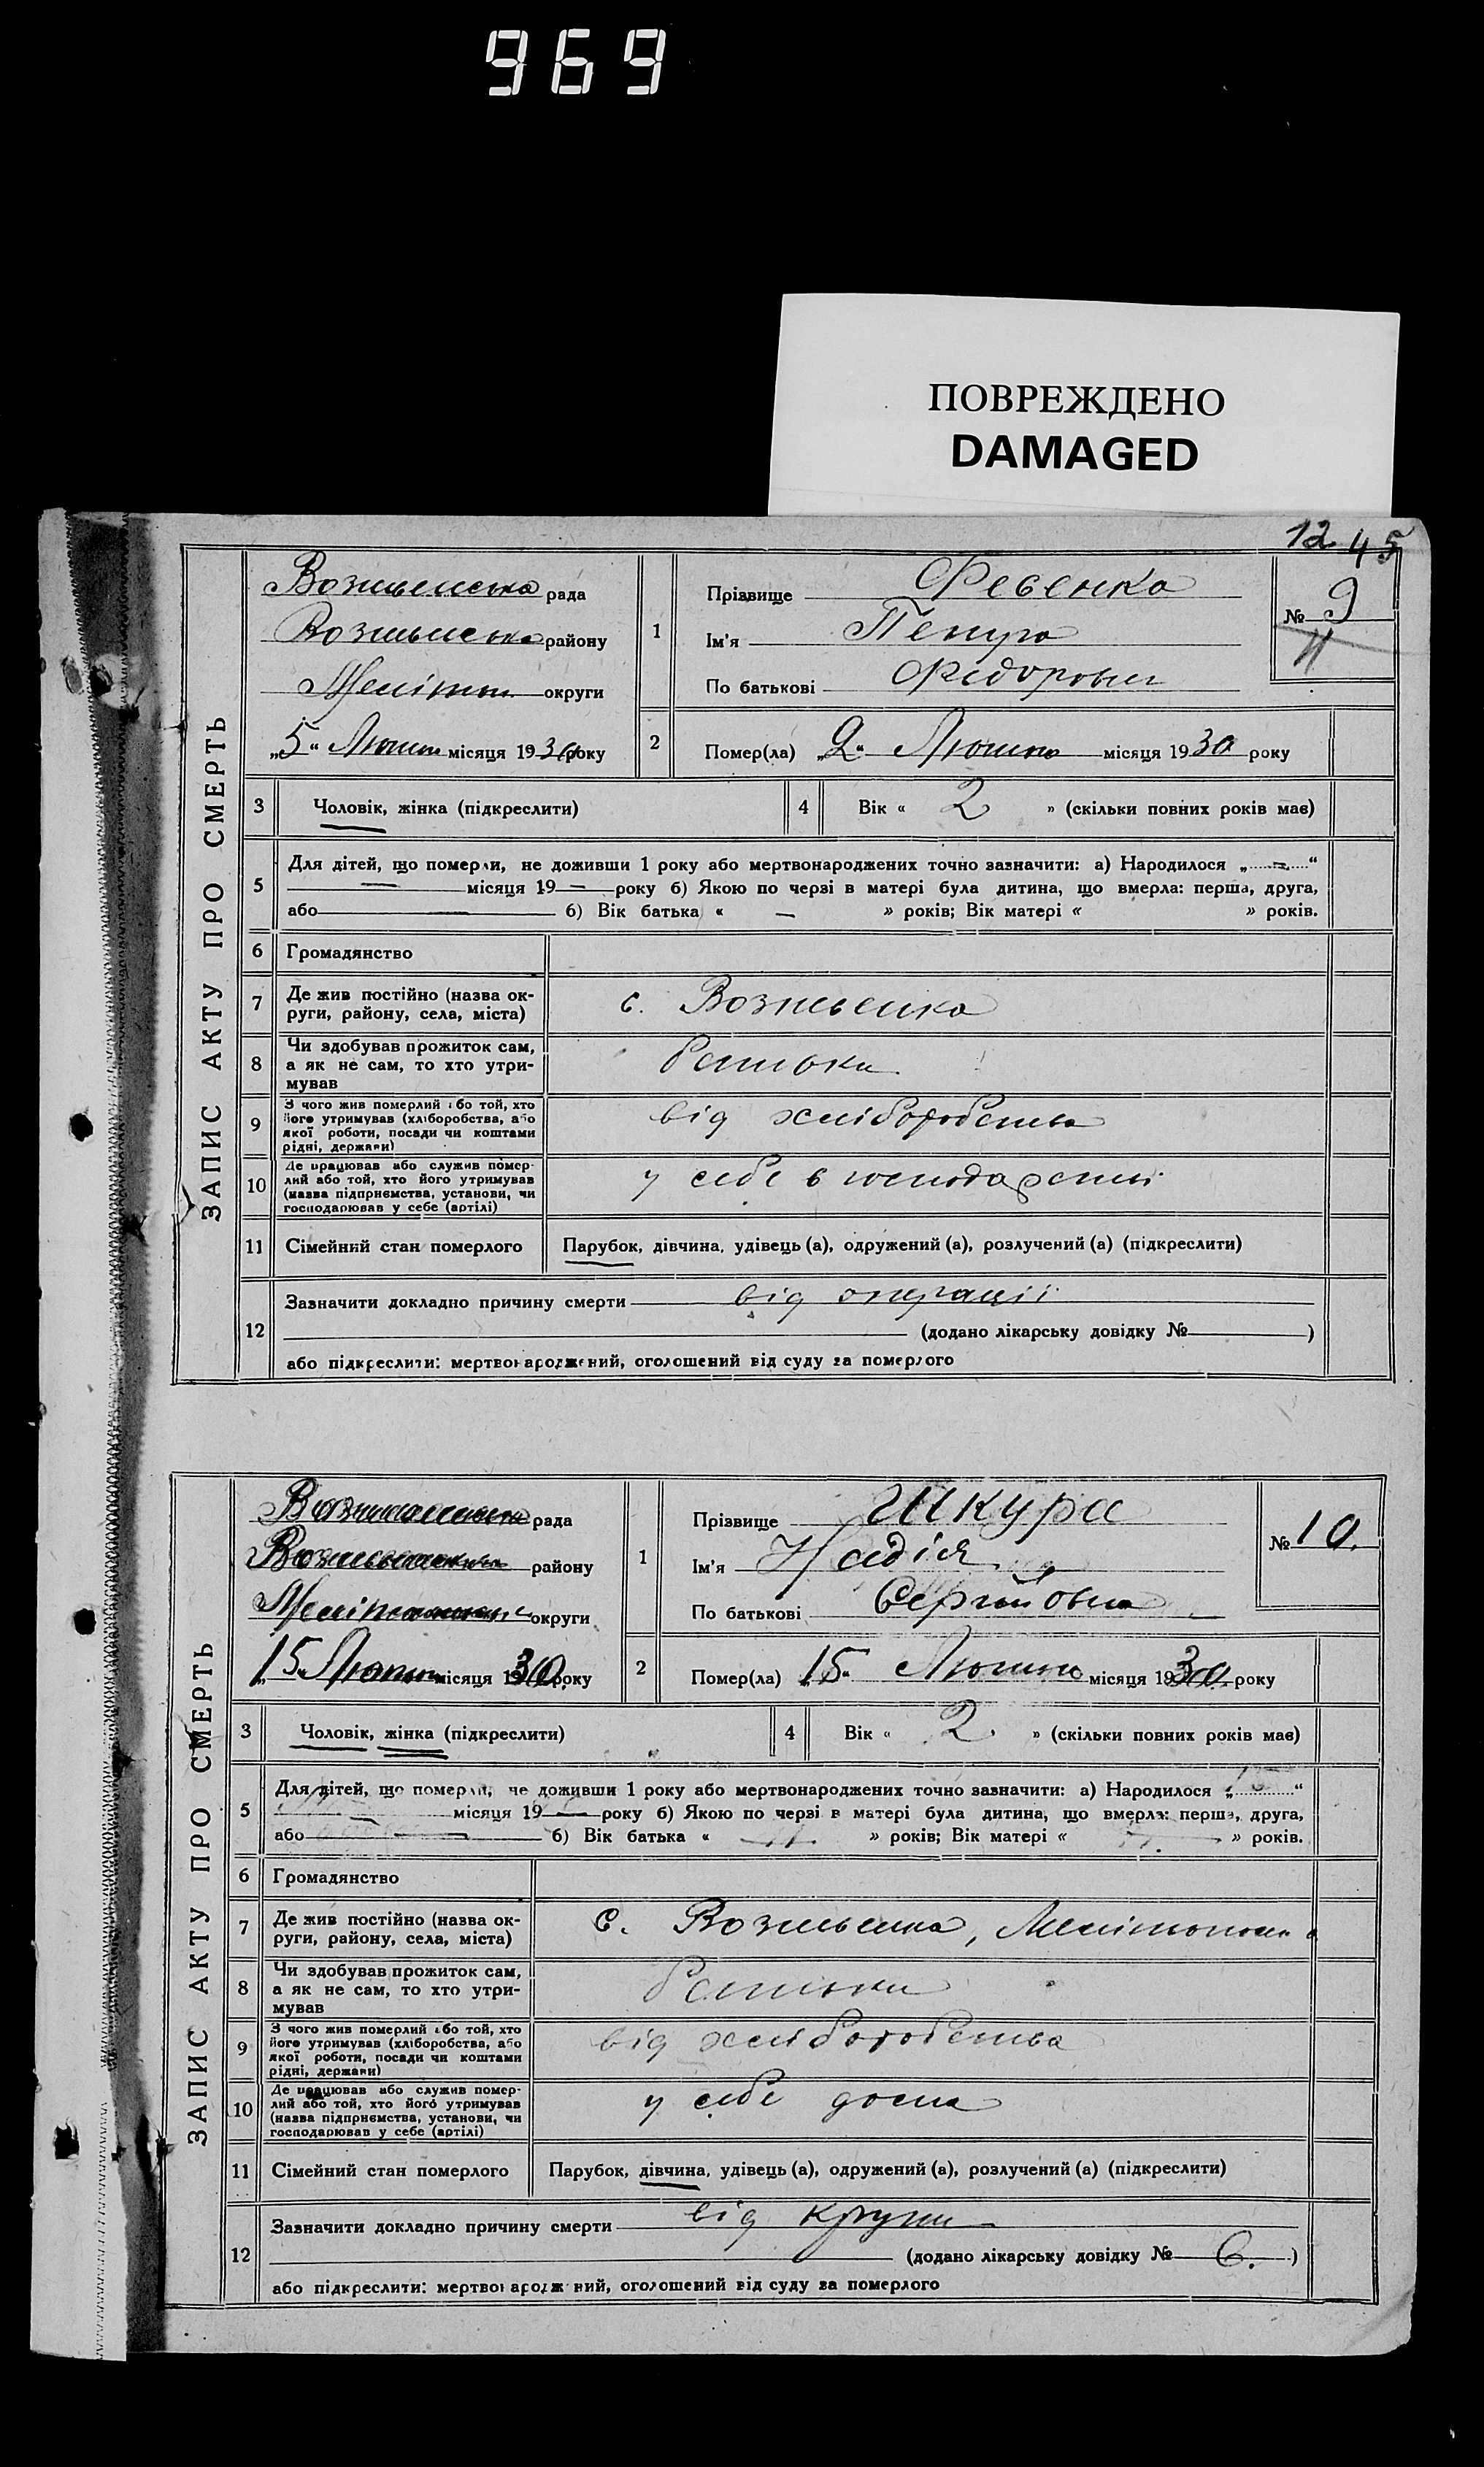 969
ПОВРЕЖДЕНО
DAMAGED
12 45
ЗАПИС АКТУ ПРО СМЕРТЬ
рада
району
округи
„5“ Лютого місяця 1930 року
1
Прізвище Февенко
Ім'я Петро
По батькові Федорович
№ 9
11
2
Помер(ла) „2“ Лютого місяця 1930 року
3
Чоловік, жінка (підкреслити)
4
Вік « 2 » (скільки повних років має)
5
Для дітей, що померли, не доживши 1 року або мертвонароджених точно зазначити: а) Народилося „ — “
— місяця 19 — року б) Якою по черзі в матері була дитина, що вмерла: перша, друга,
або — б) Вік батька « — » років; Вік матері « » років.
6
Громадянство
7
Де жив постійно (назва ок-
руги, району, села, міста)
с. Вознесенка
8
Чи здобував прожиток сам,
а як не сам, то хто утри-
мував
батьки
9
З чого жив померлий або той, хто
його утримував (хліборобства, або
якої роботи, посади чи коштами
рідні, держави)
від хліборобства
10
Де працював або служив помер-
лий або той, хто його утримував
(назва підприємства, установи, чи
господарював у себе (артілі)
у себе в господарстві
11
Сімейний стан померлого
Парубок, дівчина, удівець (а), одружений (а), розлучений (а) (підкреслити)
12
Зазначити докладно причину смерти від операції
(додано лікарську довідку № )
або підкреслити: мертвонароджений, оголошений від суду за померлого
ЗАПИС АКТУ ПРО СМЕРТЬ
рада
району
округи
„15“ Лютого місяця 1930 року
1
Прізвище Шкура
Ім'я Надія
По батькові Сергіївна
№ 10.
2
Помер(ла) „15“ Лютого місяця 1930 року
3
Чоловік, жінка (підкреслити)
4
Вік « 2 » (скільки повних років має)
5
Для дітей, що померли, не доживши 1 року або мертвонароджених точно зазначити: а) Народилося „ “
— місяця 19 — року б) Якою по черзі в матері була дитина, що вмерла: перша, друга,
або — б) Вік батька « » років; Вік матері « » років.
6
Громадянство
7
Де жив постійно (назва ок-
руги, району, села, міста)
с. Вознесенка,
8
Чи здобував прожиток сам,
а як не сам, то хто утри-
мував
батьки
9
З чого жив померлий або той, хто
його утримував (хліборобства, або
якої роботи, посади чи коштами
рідні, держави)
від хліборобства
10
Де працював або служив помер-
лий або той, хто його утримував
(назва підприємства, установи, чи
господарював у себе (артілі)
у себе дома
11
Сімейний стан померлого
Парубок, дівчина, удівець (а), одружений (а), розлучений (а) (підкреслити)
12
Зазначити докладно причину смерти від крупи
(додано лікарську довідку № 6. )
або підкреслити: мертвонароджений, оголошений від суду за померлого